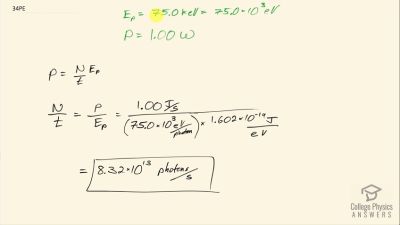 34PE
E_p = 75.0 keV = 75.0 · 10^3 eV
P = 1.00 W
P = N/t E_p
N/t = P/E_p = 1.00 J/s / (75.0 · 10^3 eV/photon) × 1.602 · 10^-19 J/eV
= 8.32 · 10^13 photons/s
College Physics
ANSWERS